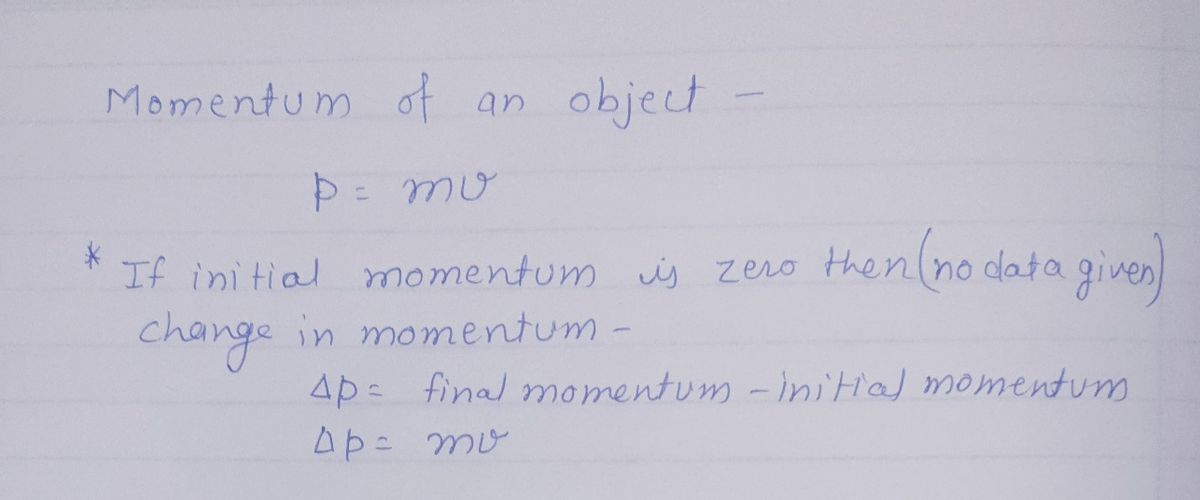 Momentum of an object -
p = mv
* If initial momentum is zero then (no data given)
change in momentum -
Δp = final momentum - initial momentum
Δp = mv